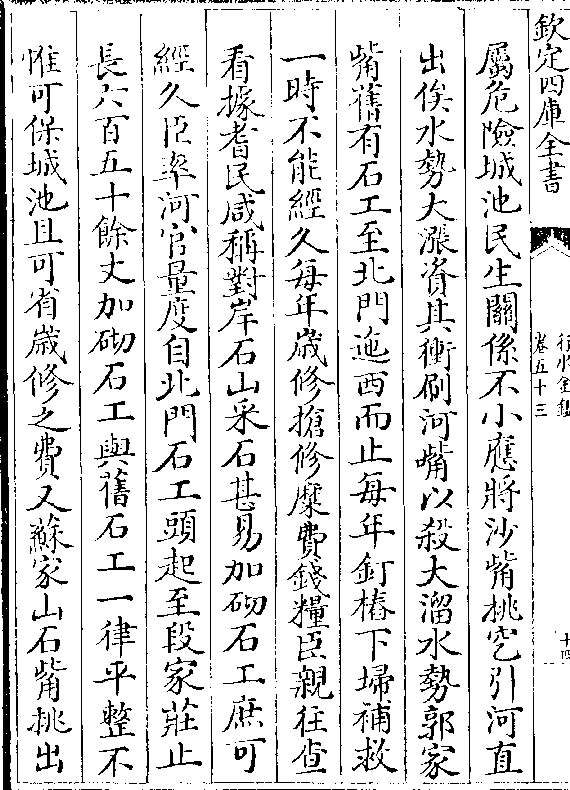 欽定四庫全書
行水金鑑
卷五十三
十四
屬危險城池民生關係不小應將沙嘴挑空引河直
出俟水勢大漲資其衝刷河嘴以殺大溜水勢郭家
觜舊有石工至北門迤西而止每年釘樁下埽補救
一時不能經久每年歲修搶修糜費錢糧臣親往查
看據耆民咸稱對岸石山采石甚易加砌石工庶可
經久臣率河官量度自北門石工頭起至段家莊止
長六百五十餘丈加砌石工與舊石工一律平整不
惟可保城池且可省歲修之費又蘇家山石觜挑出